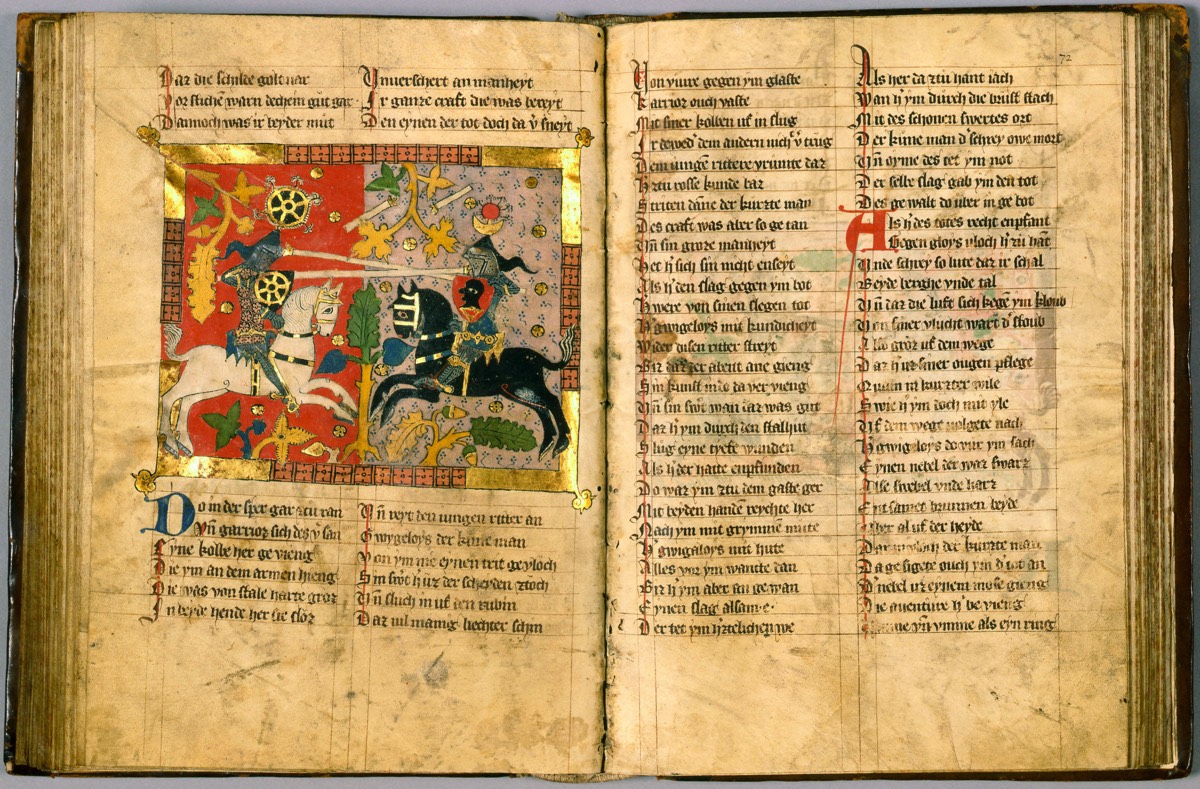 Daz die schilde golt var
Vor stichē warn dechein gut gar
Dannoch was ir beyder mut
Vnverschert an manheyt
Ir ganze craft die was bereyt
Den eynen der tot doch da v̄ sneyt
Do in der sper gar zcu ran
Vn̄ garrioz sich des v̄ san
Eyne kolbe her ge vieng
Die ym an dem armen hieng
Die was von stale harte groz
In beyde hende her sie sloz
Vn̄ reyt den iungen ritter an
Gwygeloys der kune man
Von ym nie eynen trit ge vloch
Sin swt̄ h̓ uz der scheyden zcoch
Vn̄ sluch in uf den rubin
Daz vil manig liechter schin
72
Von viure gegen ym glaste
Karrioz ouch vaste
Mit siner kolben uf in slug
Ir dewed̓ dem andern nich v̓ trug
Dem iungē rittere
H̓ zcu rosse kunde baz
Striten dāne der kurzte man
Des craft was aber so ge tan
Vn̄ sin groze manheyt
Het h̓ sich sin nicht
Als h̓ den slag gegen ym bot
H̓ were von sinen slegen tot
H̓ gwigeloys mit kundicheyt
Wider disen ritter streyt
Biz daz der abent ane gieng
Sin kunst in da ver vieng
Vn̄ sin swt̄ wan daz was gut
Daz h̓ ym durch den stalhut
Slug eyne tyefe wunden
Als h̓ der hatte enpfunden
Do waz ym zcu dem gaste ger
Mit beyden handē reychte her
Nach ym mit grymmē mute
H̓ gwigaloys mit hute
Alles vor ym wancte dan
Biz h̓ ym aber an ge wan
Eynen slag alsam e
Der tet ym h̓tzelichen we
Als her dar zcu hant sach
Wan h̓ ym durch die brust stach
Mit des schonen swertes ort
Der kune man d̓ schrey owe mort
Vn̄ des tet ym not
Der selbe slag gab ym den tot
Des ge walt do uber in ge bot
Als h̓ des totes recht enpfant
Gegen gloys vloch h̓ zcu hāt
Vnde schrey so lute daz ir schal
Beyde berghe vnde tal
Vn̄ daz die luft sich kegē ym kloub
Von siner vlucht wart d̓ stoub
Also groz uf dem wege
Daz h̓ uz siner ougen pflege
Quam in kurzter wile
Swie h̓ ym doch mit yle
Uf dem wege volgete nach
H̓ gwigeloys do vur ym sach
Eynen nebel der waz swarz
Alse swebel vnde harz
Ent samet brunnen beyde
Uber al uf der heyde
Dar in vloch der kurzte man
Da ge sigete ouch ym d̓ tot an
D̓ nebel uz eynem mose gieng
Die aventure h̓ be vieng
vn̄ vmme als eyn ring